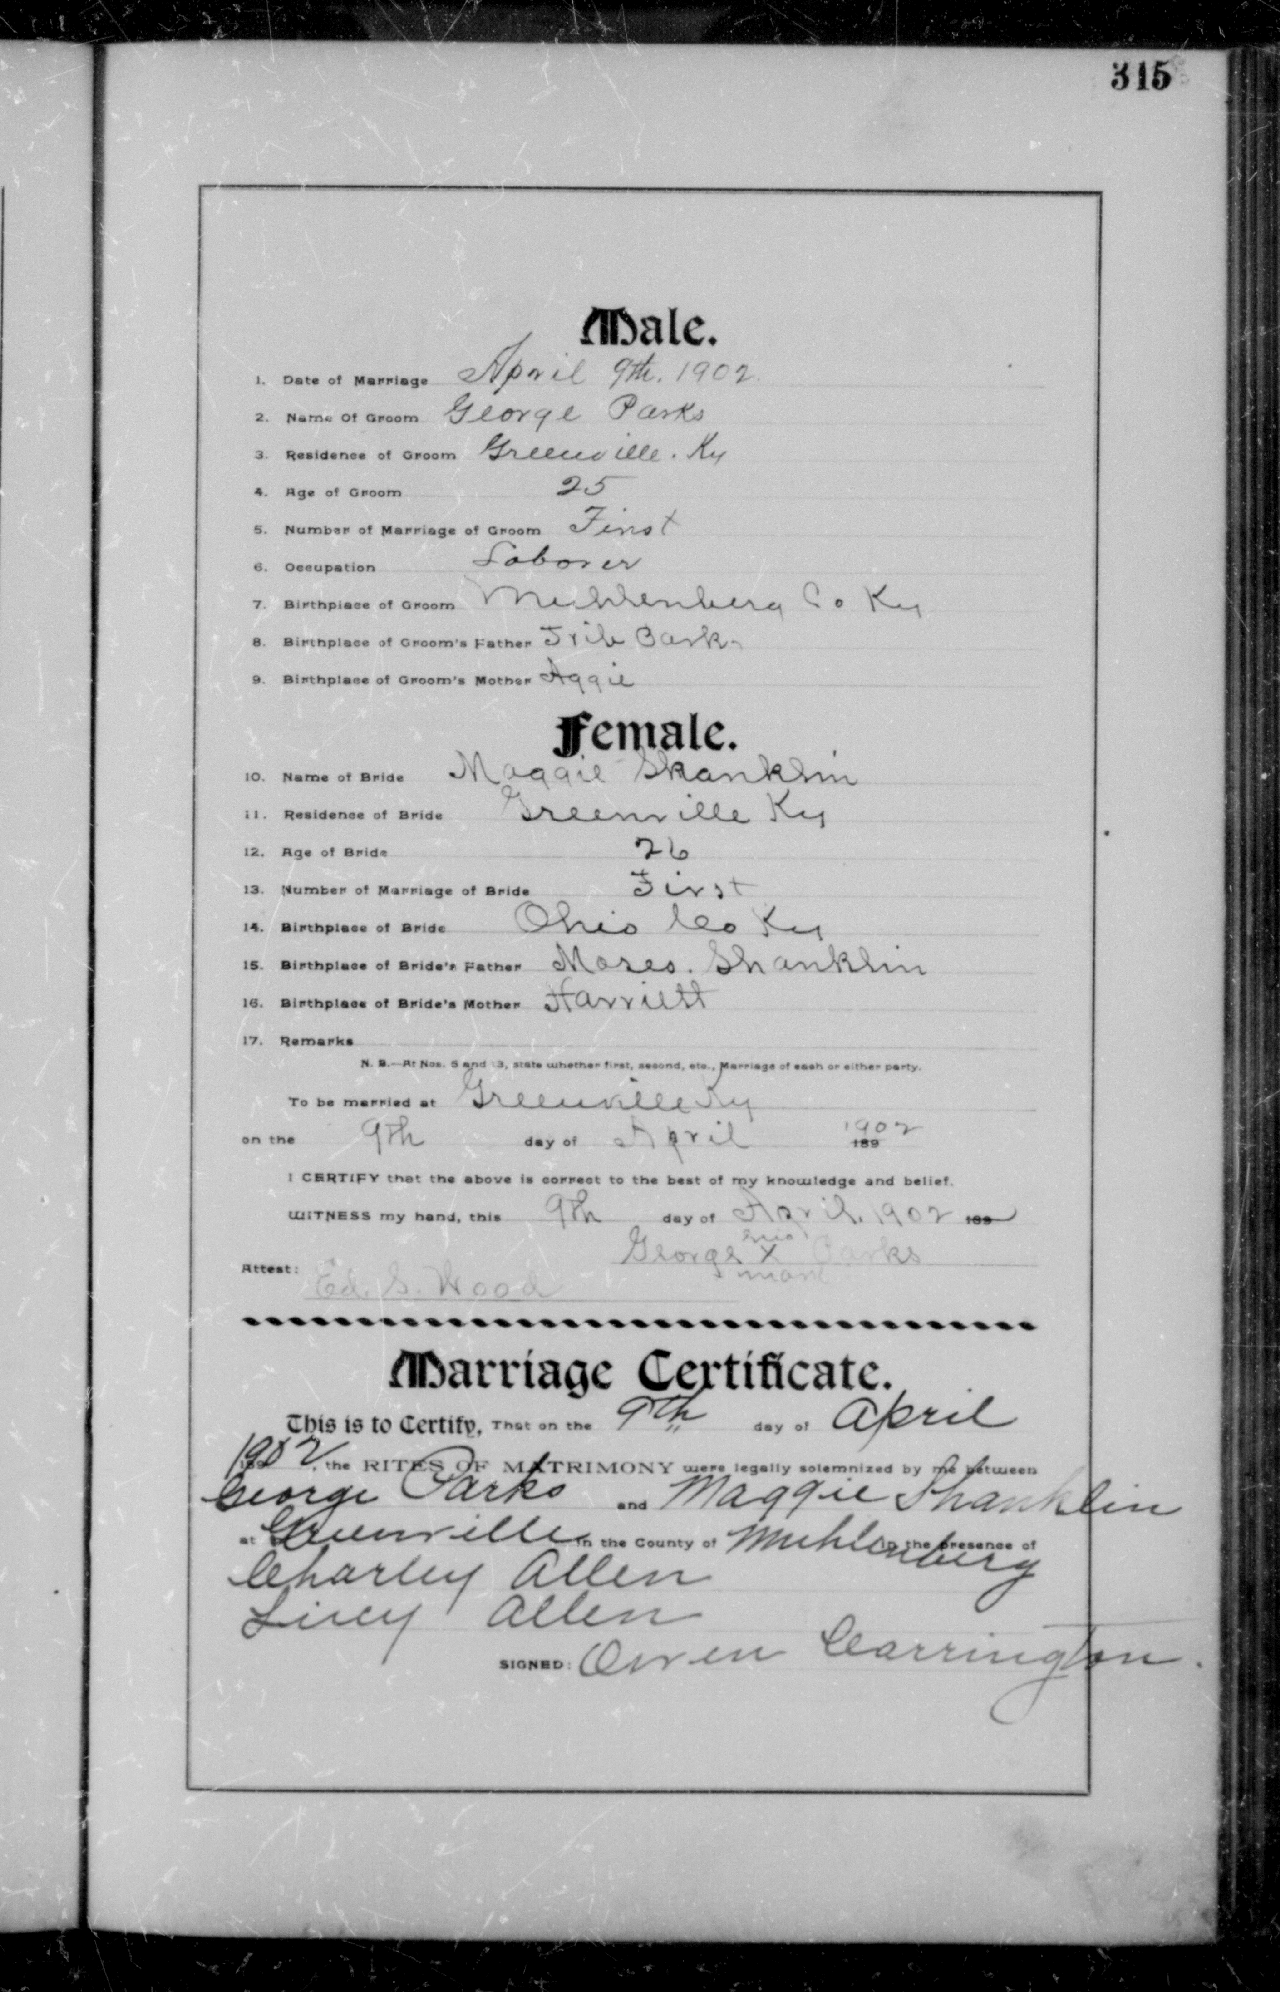 315
Male.
1. Date of Marriage April 9th. 1902
2. Name Of Groom George Parks
3. Residence of Groom Greenville. Ky
4. Age of Groom 25
5. Number of Marriage of Groom First
6. Occupation Laborer
7. Birthplace of Groom Muhlenberg Co Ky
8. Birthplace of Groom's Father Parks
9. Birthplace of Groom's Mother Aggie
Female.
10. Name of Bride Maggie Shanklin
11. Residence of Bride Greenville Ky
12. Age of Bride 26
13. Number of Marriage of Bride First
14. Birthplace of Bride Ohio Co Ky
15. Birthplace of Bride's Father Moses. Shanklin
16. Birthplace of Bride's Mother Harriett
17. Remarks
N. B.—At Nos. 5 and 13, state whether first, second, etc., Marriage of each or either party.
To be married at Greenville Ky
on the 9th day of April 1902 189
I CERTIFY that the above is correct to the best of my knowledge and belief.
WITNESS my hand, this 9th day of April, 1902 189
George his X mark Parks
Attest: Ed. S. Wood
Marriage Certificate.
This is to Certify, That on the 9th day of April
1902, the RITES OF MATRIMONY were legally solemnized by me between
George Parks and Maggie Shanklin
at Greenville in the County of Muhlenberg in the presence of
Charley Allen
Lucy Allen
SIGNED: Owen Carrington.